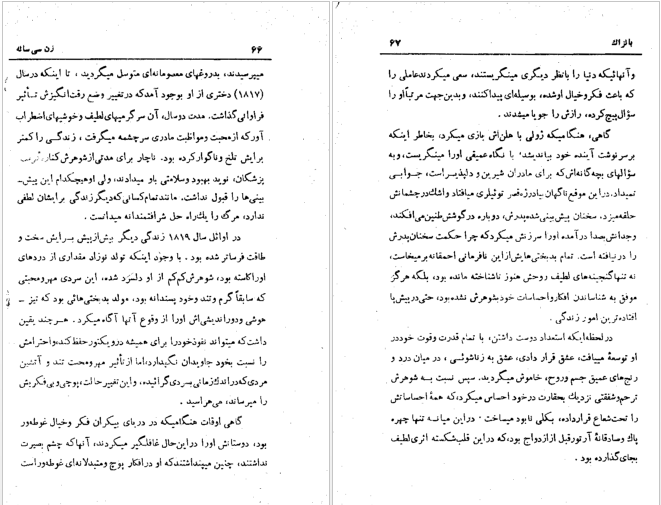 ۶۶ زن سی ساله
میپرسیدند، بدروغهای معصومانه‌ای متوسل میگردید، تا اینکه درسال
(۱۸۱۷) دختری از او بوجود آمدکه درتغییر وضع رقت‌انگیزش تأثیر
فراوانی گذاشت. مدت دوسال، آن سرگرمیهای لطیف وخوشیهای اضطراب
آورکه ازمحبت ومواظبت مادری سرچشمه میگرفت، زندگی را کمتر
برایش تلخ وناگوارکرده بود. ناچار برای مدتی ازشوهرش کنار گرفت.
پزشکان، نوید بهبود وسلامتی باو میدادند، ولی اوهیچکدام این پیش‌ـ
بینی‌ها را قبول نداشت. مانندتمام کسانی که دیگرزندگی برایشان لطفی
ندارد، مرگ را یک راه حل شرافتمندانه میدانست.
در اوائل سال ۱۸۱۹ زندگی دیگر بیش‌ازپیش بسرایش سخت و
طاقت فرساتر شده بود. با وجود اینکه تولد نوزاد مقداری از دردهای
اوراکاسته بود، شوهرش کم‌کم از او دلسرد شده، این سردی مهرومحبتی
که سابقاً گرم وتند وخود پسندانه بود، مولد بدبختی‌هائی بود که تیز ـ
هوشی ودوراندیشی‌اش اورا از وقوع آنها آگاه میکرد. هرچند یقین
داشت‌که میتواند نفوذ خودرا برای همیشه درویکتور حفظ کند واحترامش
را نسبت بخود جاویدان نگیدارد، اما ازتأثیر مهرومحبت تند و آتشین
مردی‌که دراندک زمانی بسردی گرائیده، واین تغییر حالت، پوچی وبی‌فکریش
را میرساند، می‌هراسید.
گاهی اوقات هنگامیکه در دریای بیکران فکر وخیال غوطه‌ور
بود، دوستانش اورا دراین حال غافلگیر میکردند. آنهاکه چشم بصیرت
نداشتند، چنین میپنداشتندکه او درافکار پوچ ومبتذلانه‌ای غوطه‌وراست
بالزاک ۶۷
وآنهائیکه دنیا را بانظر دیگری مینگریستند، سعی میکردندعاملی را
که باعث فکروخیال اوشده، بوسیله‌ای پیداکنند، وبدین جهت مرتباً او را
سؤال پیچ‌کرده، رازش را جویا میشدند.
گاهی، هنگامیکه ژولی با هلن‌اش بازی میکرد، بخاطر اینکه
برسرنوشت آینده خود بیاندیشد، با نگاه عمیقی اورا مینگریست، وبه
سؤالهای بچه‌گانه‌اش‌که برای مادران شیرین و دلپذیراست، جوابی
نمیداد. دراین موقع ناگهان بیادرژه قصر توئیلری میافتاد واشک درچشمانش
حلقه میزد. سخنان پیش‌بینی شده پدرش، دوباره درگوشش طنین می‌افکند،
وجدانش بصدا درآمده اورا سرزنش میکردکه چرا حکمت سخنان پدرش
را درنیافته است. تمام بدبختی‌هایش ازاین نافرمانی احمقانه برمیخاست،
نه تنهاگنجینه‌های لطیف روحش هنوز ناشناخته مانده بود، بلکه هرگز
موفق به شناساندن افکارواحساسات خودبشوهرش نشده بود، حتی درپیش‌پا
افتاده‌ترین امور زندگی.
درلحظه‌ایکه استعداد دوست داشتن، با تمام قدرت وقوت خوددر
او توسعهٔ مییافت، عشق قرار دادی، عشق به زناشوئی، در میان درد و
رنج‌های عمیق جسم وروح، خاموش میگردید. سپس نسبت بسه شوهرش
ترحم وشفقتی نزدیک بحقارت درخود احساس میکرد،که همهٔ احساساتش
را تحت شعاع قرارداده، بکلی نابود میساخت. دراین میانه تنها چهره
پاک وصادقانهٔ آرتورقبل ازازدواج بود،که دراین قلب شکسته اثری لطیف
بجای‌گذارده بود.